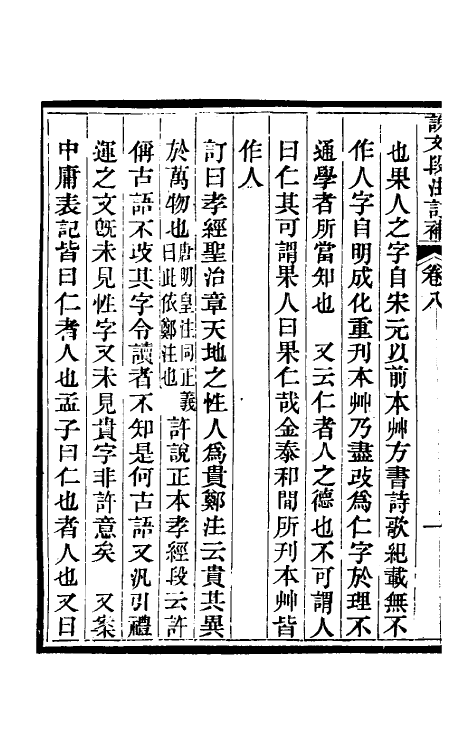 說文段注訂補 卷八 一
也果人之字自宋元以前本艸方書詩歌紀載無不
作人字自明成化重刊本艸乃盡改爲仁字於理不
通學者所當知也　又云仁者人之德也不可謂人
曰仁其可謂果人曰果仁哉金泰和閒所刊本艸皆
作人
訂曰孝經聖治章天地之性人爲貴鄭注云貴其異
於萬物也唐明皇注同正義曰此依鄭注也　許說正本孝經段云許
偁古語不改其字令讀者不知是何古語又汎引禮
運之文旣未見性字又未見貴字非許意矣　又案
中庸表記皆曰仁者人也孟子曰仁也者人也又曰